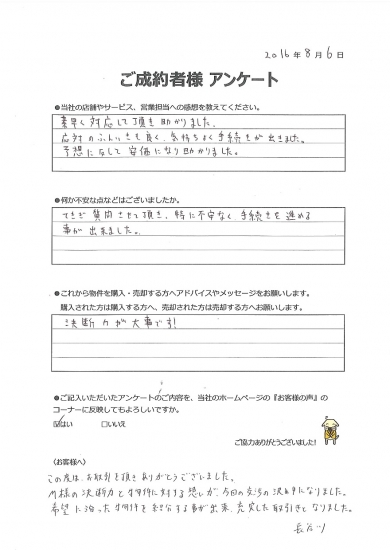 2016年8月6日
ご成約者様 アンケート
●当社の店舗やサービス、営業担当への感想を教えてください。
素早く対応して頂き助かりました。
応対のふんいきも良く、気持ちよく手続きが出きました。
予想に反して安価になり助かりました。
●何か不安な点などはございましたか。
てきぎ質問させて頂き、特に不安なく手続きを進める
事が出来ました。
●これから物件を購入・売却する方へアドバイスやメッセージをお願いします。
購入された方は購入する方へ、売却された方は売却する方へお願いします。
決断力が大事です!
●ご記入いただいたアンケートのご内容を、当社のホームページの『お客様の声』の
コーナーに反映してもよろしいですか。
☑はい □いいえ
ご協力ありがとうございました!
〈お客様へ〉
この度は、お取引を頂きありがとうございました。
様の決断力と物件に対する思いが、今回の交渉の決め手になりました。
希望に沿った物件を紹介する事が出来、充実した取引となりました。
長谷川